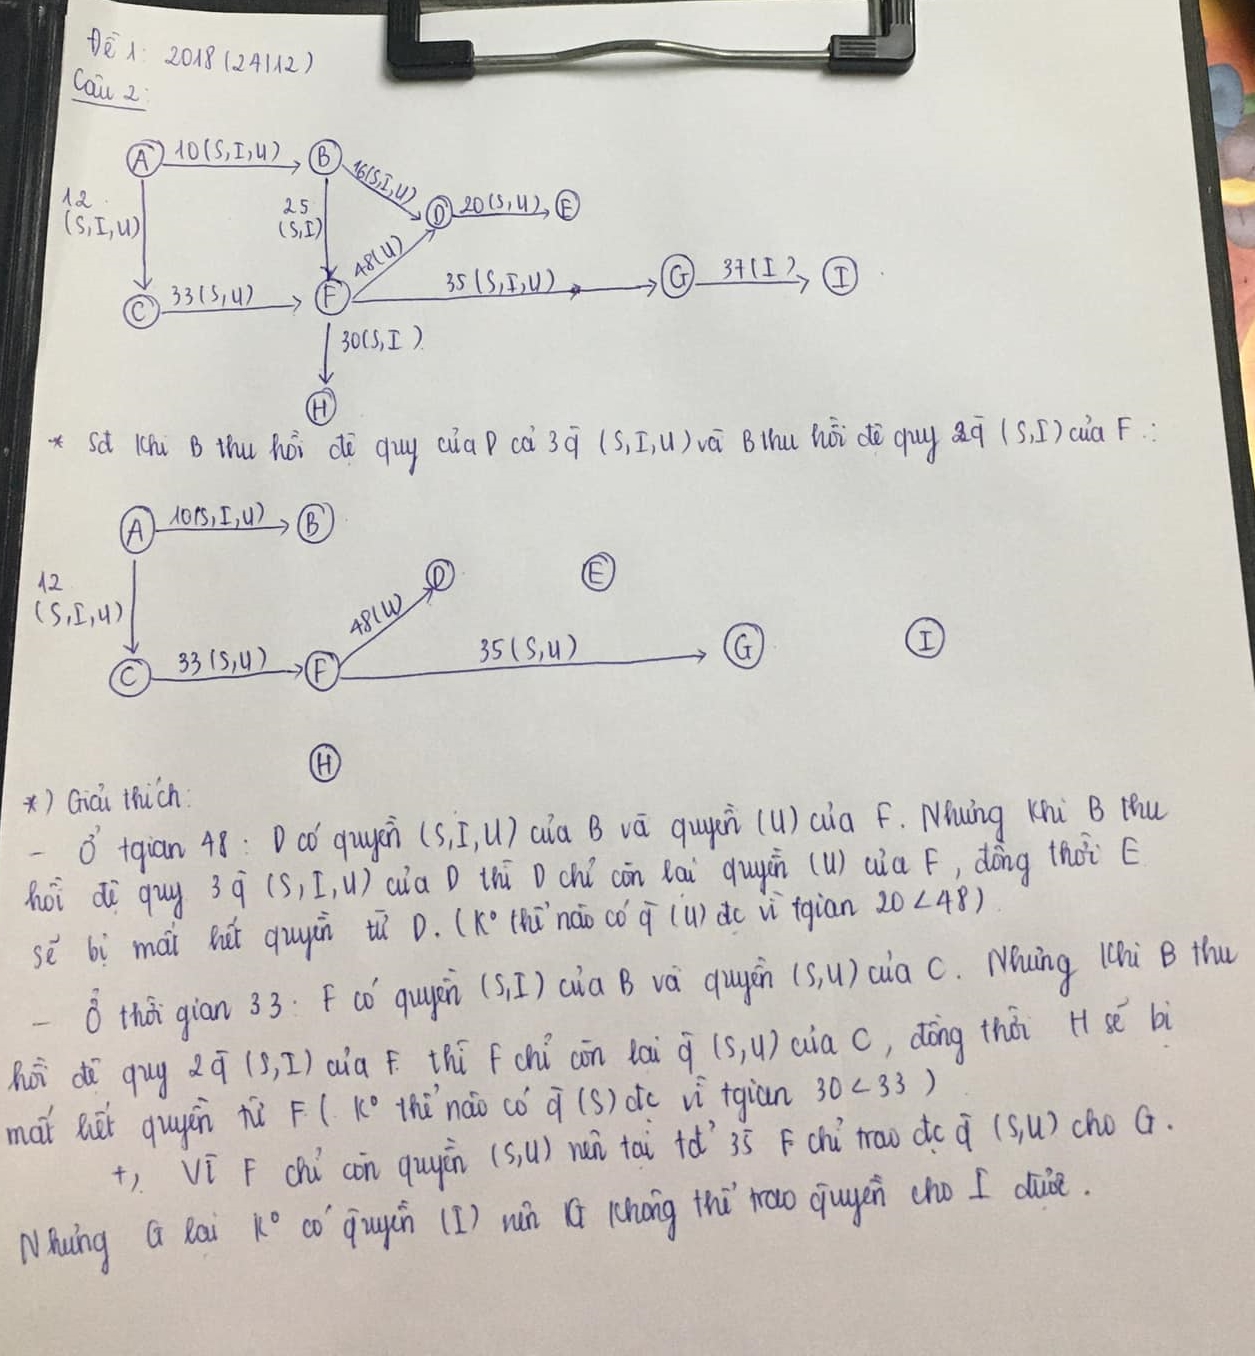 Đề 1: 2018 (24/12)
Câu 2:
A 10(S,I,U) B 16(S,I,U) D 20(S,U) E
12 (S,I,U)
25 (S,I)
C 33(S,U) F 48(U) 35(S,I,U) G 37(I) I
30(S,I)
H
* Sđ khi B thu hồi đệ quy của D cả 3 q̄ (S,I,U) và B thu hồi đệ quy 2 q̄ (S,I) của F :
A 10(S,I,U) B
12 (S,I,U)
D E
C 33(S,U) F 48(U) 35(S,U) G I
H
*) Giải thích:
- Ở tgian 48 : D có quyền (S,I,U) của B và quyền (U) của F. Nhưng khi B thu
hồi đệ quy 3 q̄ (S,I,U) của D thì D chỉ còn lại quyền (U) của F, đồng thời E
sẽ bị mất hết quyền từ D. (K° thể nào có q̄ (U) đc vì tgian 20 < 48)
- Ở thời gian 33: F có quyền (S,I) của B và quyền (S,U) của C. Nhưng khi B thu
hồi đệ quy 2 q̄ (S,I) của F thì F chỉ còn lại q̄ (S,U) của C, đồng thời H sẽ bị
mất hết quyền từ F ( K° thể nào có q̄ (S) đc vì tgian 30 < 33 )
+, Vì F chỉ còn quyền (S,U) nên tại tđ' 35 F chỉ trao đc q̄ (S,U) cho G.
Nhưng G lại K° có quyền (I) nên G không thể trao quyền cho I được.